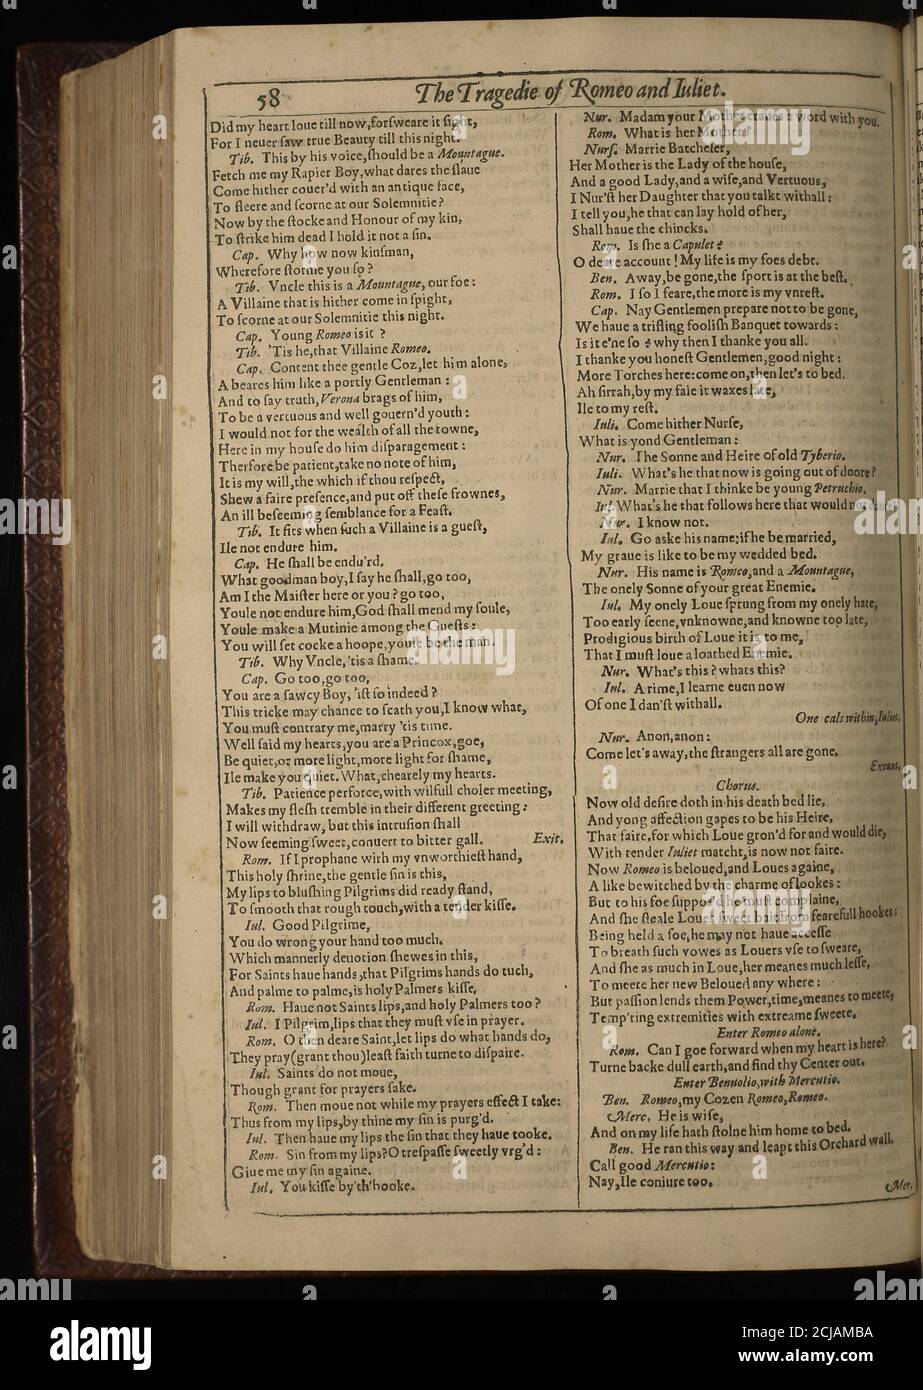 58 The Tragedie of Romeo and Iuliet.
Did my heart loue till now, forsweare it sight,
For I neuer saw true Beauty till this night.
Tib. This by his voice, should be a Mountague.
Fetch me my Rapier Boy, what dares the slaue
Come hither couer'd with an antique face,
To fleere and scorne at our Solemnitie?
Now by the stocke and Honour of my kin,
To strike him dead I hold it not a sin.
Cap. Why how now kinsman,
Wherefore storme you so?
Tib. Vncle this is a Mountague, our foe:
A Villaine that is hither come in spight,
To scorne at our Solemnitie this night.
Cap. Young Romeo is it ?
Tib. 'Tis he, that Villaine Romeo.
Cap. Content thee gentle Coz, let him alone,
A beares him like a portly Gentleman :
And to say truth, Verona brags of him,
To be a vertuous and well gouern'd youth :
I would not for the wealth of all the towne,
Here in my house do him disparagement :
Therfore be patient, take no note of him,
It is my will, the which if thou respect,
Shew a faire presence, and put off these frownes,
An ill beseeming semblance for a Feast.
Tib. It fits when such a Villaine is a guest,
Ile not endure him.
Cap. He shall be endu'rd.
What goodman boy, I say he shall, go too,
Am I the Maister here or you ? go too,
Youle not endure him, God shall mend my soule,
Youle make a Mutinie among the Guests :
You will set cocke a hoope, youle be the man.
Tib. Why Vncle, 'tis a shame.
Cap. Go too, go too,
You are a sawcy Boy, 'ist so indeed ?
This tricke may chance to scath you, I know what,
You must contrary me, marry 'tis time.
Well said my hearts, you are a Princox, goe,
Be quiet, or more light, more light for shame,
Ile make you quiet. What, chearely my hearts.
Tib. Patience perforce, with wilfull choler meeting,
Makes my flesh tremble in their different greeting :
I will withdraw, but this intrusion shall
Now seeming sweet, conuert to bitter gall. Exit.
Rom. If I prophane with my vnworthiest hand,
This holy shrine, the gentle sin is this,
My lips to blushing Pilgrims did ready stand,
To smooth that rough touch, with a tender kisse.
Iul. Good Pilgrime,
You do wrong your hand too much.
Which mannerly deuotion shewes in this,
For Saints haue hands, that Pilgrims hands do tuch,
And palme to palme, is holy Palmers kisse.
Rom. Haue not Saints lips, and holy Palmers too ?
Iul. I Pilgrim, lips that they must vse in prayer.
Rom. O then deare Saint, let lips do what hands do,
They pray (grant thou) least faith turne to dispaire.
Iul. Saints do not moue,
Though grant for prayers sake.
Rom. Then moue not while my prayers effect I take:
Thus from my lips, by thine my sin is purg'd.
Iul. Then haue my lips the sin that they haue tooke.
Rom. Sin from my lips? O trespasse sweetly vrg'd :
Giue me my sin againe.
Iul. You kisse by'th'booke.
Nur. Madam your Mother craues a word with you.
Rom. What is her Mother?
Nurs. Marrie Batcheler,
Her Mother is the Lady of the house,
And a good Lady, and a wise, and Vertuous,
I Nur'st her Daughter that you talkt withall :
I tell you, he that can lay hold of her,
Shall haue the chincks.
Rom. Is she a Capulet ?
O deare account ! My life is my foes debt.
Ben. Away, be gone, the sport is at the best.
Rom. I so I feare, the more is my vnrest.
Cap. Nay Gentlemen prepare not to be gone,
We haue a trifling foolish Banquet towards :
Is it e'ne so ? why then I thanke you all.
I thanke you honest Gentlemen, good night :
More Torches here: come on, then let's to bed.
Ah sirrah, by my faie it waxes late,
Ile to my rest.
Iuli. Come hither Nurse,
What is yond Gentleman :
Nur. The Sonne and Heire of old Tyberio.
Iuli. What's he that now is going out of doore?
Nur. Marrie that I thinke be young Petruchio.
Iul. What's he that follows here that would not dance?
Nur. I know not.
Iul. Go aske his name: if he be married,
My graue is like to be my wedded bed.
Nur. His name is Romeo, and a Mountague,
The onely Sonne of your great Enemie.
Iul. My onely Loue sprung from my onely hate,
Too early seene, vnknowne, and knowne too late,
Prodigious birth of Loue it is to me,
That I must loue a loathed Enemie.
Nur. What's this ? whats this?
Iul. A rime, I learne euen now
Of one I dan'st withall.
One cals within, Iuliet.
Nur. Anon, anon :
Come let's away, the strangers all are gone.
Exeunt.
Chorus.
Now old desire doth in his death bed lie,
And yong affection gapes to be his Heire,
That faire, for which Loue gron'd for and would die,
With tender Iuliet matcht, is now not faire.
Now Romeo is beloued, and Loues againe,
A like bewitched by the charme of lookes :
But to his foe suppos'd he must complaine,
And she steale Loues sweet bait from fearefull hookes :
Being held a foe, he may not haue accesse
To breath such vowes as Louers vse to sweare,
And she as much in Loue, her meanes much lesse,
To meete her new Beloued any where :
But passion lends them Power, time, meanes to meete,
Temp'ring extremities with extreame sweete.
Enter Romeo alone.
Rom. Can I goe forward when my heart is here?
Turne backe dull earth, and find thy Center out.
Enter Benuolio, with Mercutio.
Ben. Romeo, my Cozen Romeo, Romeo.
Merc. He is wise,
And on my life hath stolne him home to bed.
Ben. He ran this way and leapt this Orchard wall.
Call good Mercutio :
Nay, Ile coniure too.
Mer.
alamy
alamy
Image ID: 2CJAMBA
www.alamy.com